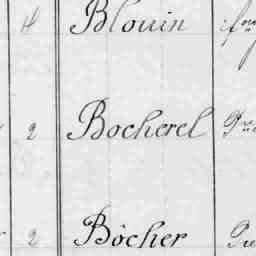 4 Blouin
2 Bocherel
2 Bôcher